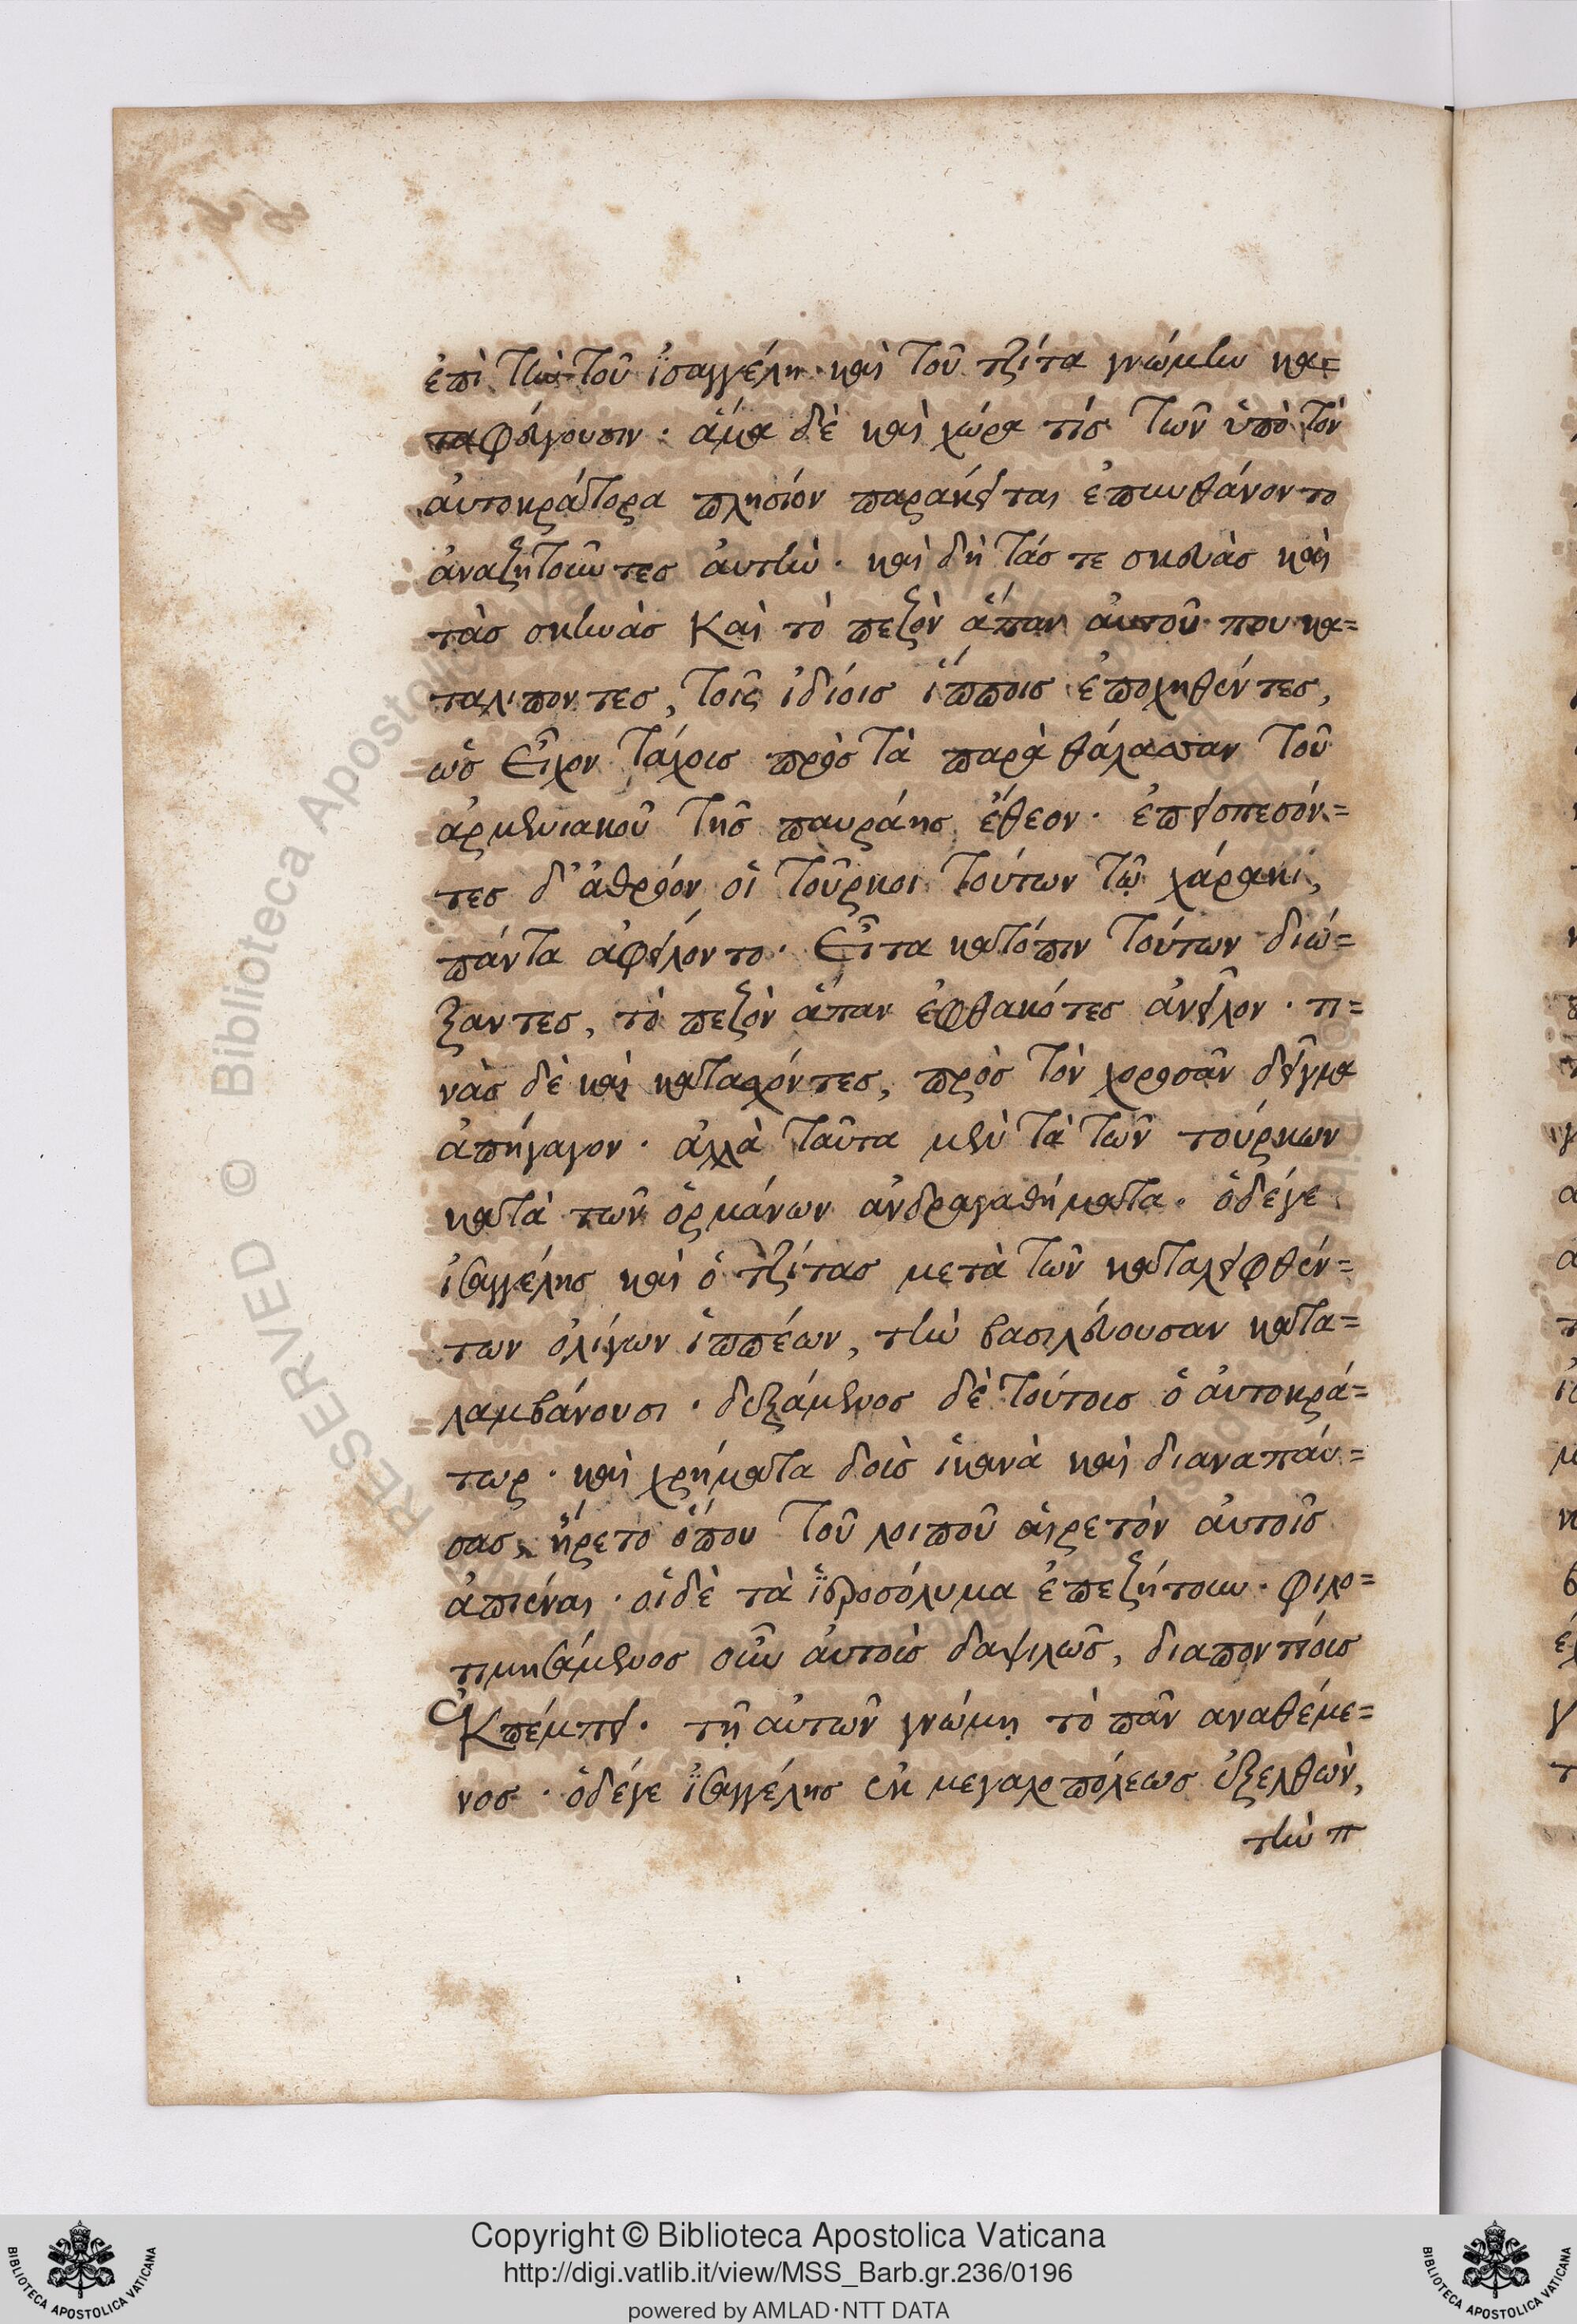 ἐπὶ τὴν τοῦ ἰσαγγέλη καὶ τοῦ τζίτα γνώμην κα=
ταφεύγουσιν · ἅμα δὲ καὶ χώρα τίς τῶν ὑπὸ τὸν
ἀυτοκράτορα πλησίον παράκειται ἐπυνθάνοντο
ἀναζητοῦντες ἀυτὴν · καὶ δὴ τάς τε σκευὰς καὶ
τὰς σκηνὰς Καὶ τὸ πεζὸν ἅπαν ἀυτοῦ που κα=
ταλιπόντες, τοῖς ἰδίοις ἵπποις ἐποχηθέντες,
ὡς Εἶχον τάχοις πρὸς τὰ παρὰ θάλασσαν τοῦ
ἀρμενιακοῦ τῆς παυράης ἔθεον · ἐπεισπεσόν=
τες δ᾽ ἀθρόον οἱ τοῦρκοι τούτων τῷ χάρακι,
πάντα ἀφείλοντο · Εἶτα κατόπιν τούτων διώ=
ξαντες, τὸ πεζὸν ἅπαν ἐφθακότες ἀνεῖλον · τι=
νὰς δὲ καὶ κατασχόντες, πρὸς τὸν χοροσᾶν δεῖγμα
ἀπήγαγον · ἀλλὰ ταῦτα μὲν τὰ τῶν τούρκων
κατὰ τῶν ὁρμάνων ἀνδραγαθήματα · ὁδέγε
ἰσαγγέλης καὶ ὁ τζίτας μετὰ τῶν καταλειφθέν=
των ὀλίγων ἱππέων, τὴν βασιλεύουσαν κατα=
λαμβάνουσι · δεξάμενος δὲ τούτοις ὁ ἀυτοκρά=
τωρ · καὶ χρήματα δοὶς ἱκανὰ καὶ διαναπάυ=
σας, ἤρετο ὅπου τοῦ λοιποῦ ἁιρετὸν ἀυτοῖς
ἀπιέναι · οἱδὲ τὰ ἱεροσόλυμα ἐπεζήτουν · φιλο=
τιμησάμενος οὖν ἀυτοὶς δαψιλῶς, διαποντίοις
ἐκπέμπει · τῇ ἀυτῶν γνώμῃ τὸ πᾶν αναθέμε=
νος · ὁδέγε ἰσαγγέλης ἐκ μεγαλοπόλεως ἐξελθὼν,
τὴν π
Copyright © Biblioteca Apostolica Vaticana
http://digi.vatlib.it/view/MSS_Barb.gr.236/0196
powered by AMLAD·NTT DATA
BIBLIOTECA APOSTOLICA VATICANA
BIBLIOTECA APOSTOLICA VATICANA